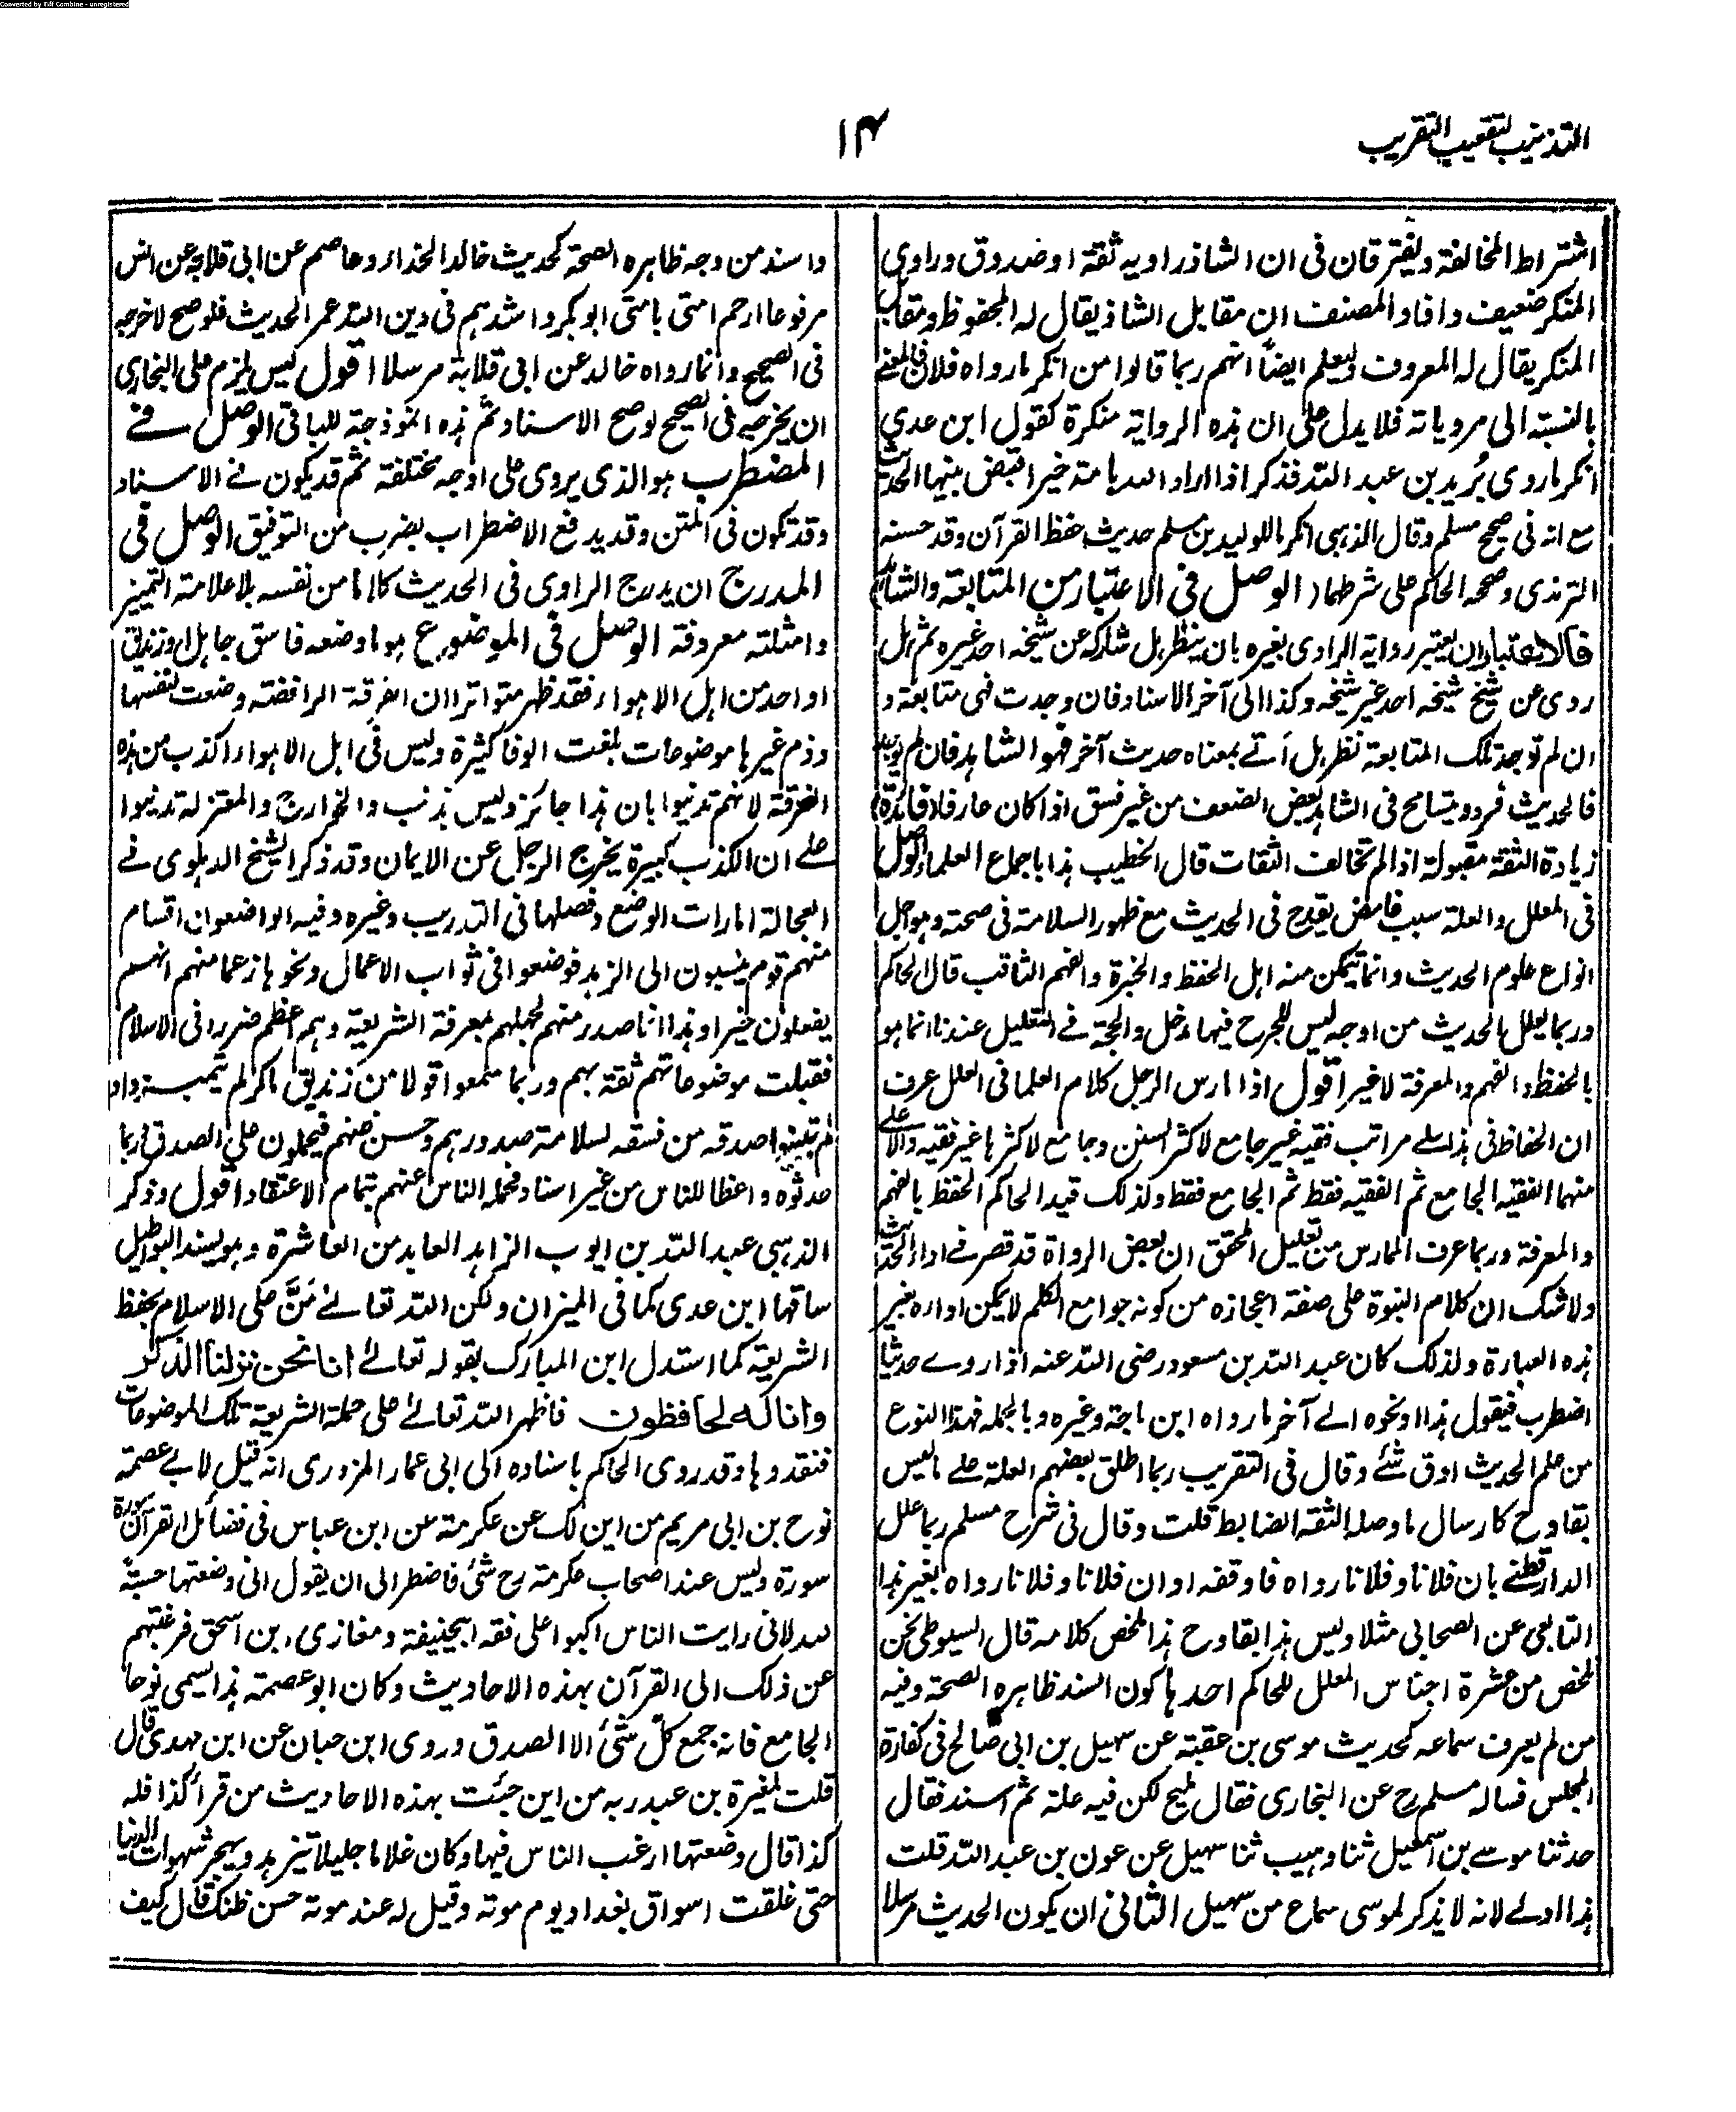 Converted by Tiff Combine - unregistered
التذنيب لتعقيب التقريب
١٤
اشتراط المخالفة ويفترقان فى ان الشاذ راويه ثقة او صدوق وراوى
المنكر ضعيف وافاد المصنف ان مقابل الشاذ يقال له المحفوظ ومقابل
المنكر يقال له المعروف وليعلم ايضاً انهم ربما قالوا من انكر ما رواه فلان فالمعنى
بالنسبة الى مروياته فلا يدل على ان هذه الرواية منكرة كقول ابن عدي
انكر ما روى بُريد بن عبد الله فذكر اذا اراد الله بامة خيرا قبض نبيها الحديث
مع انه فى صحيح مسلم وقال الذهبى انكر ما للوليد بن مسلم حديث حفظ القرآن وقد حسنه
الترمذى وصححه الحاكم على شرطهما الوصل في الاعتبار من المتابعة والشاهد
فالاعتبار ان يعتبر رواية الراوى بغيره بان ينظر هل شاركه عن شيخه احد غيره ثم هل
روى عن شيخ شيخه احد غير شيخه وكذا الى آخر الاسناد فان وجدت فهى متابعة و
ان لم توجد تلك المتابعة نظر هل أتے بمعناه حديث آخر فهو الشاهد فان لم يوجد
فالحديث فرد ويتسامح فى الشاهد بعض الضعف من غير فسق اذا كان عارفا فائدة
زيادة الثقة مقبولة اذا لم تخالف الثقات قال الخطيب هذا باجماع العلماء الوصل
فى المعلل والعلة سبب غامض يقدح فى الحديث مع ظهور السلامة فى صحته وهو اجل
انواع علوم الحديث وانما يتمكن منه اهل الحفظ والخبرة والفهم الثاقب قال الحاكم
وربما يعلل الحديث من اوجه ليس للجرح فيها دخل والحجة فے التعليل عندنا انما هو
بالحفظ والفهم والمعرفة لا غير اقول اذا مارس الرجل كلام العلما فى العلل عرف
ان الحفاظ فى هذا علے مراتب فقيه غير جامع لاكثر السنن وجامع لاكثرها غير فقيه والاعلى
منهما الفقيه الجامع ثم الفقيه فقط ثم الجامع فقط ولذلك قيد الحاكم الحفظ بالفهم
والمعرفة وربما عرف الممارس من تعليل المحقق ان بعض الرواة قد قصر فے اداء الحديث
ولا شك ان كلام النبوة على صفة اعجازه من كونه جوامع الكلم لا يمكن اداره بغير
هذه العبارة ولذلك كان عبد الله بن مسعود رضى الله عنه اذا روے حديثا
اضطرب فيقول هذا او نحوه الے آخر ما رواه ابن ماجة وغيره وبالجمله فهذا النوع
من علم الحديث ادق شئے وقال فى التقريب ربما اطلق بعضهم العلة علے ما ليس
بقادح كارسال ما وصله الثقه الضابط قلت وقال فى شرح مسلم ربما علل
الدارقطنے بان فلانا وفلانا رواه فاوقفه او ان فلانا وفلانا رواه بغير هذا
التابعى عن الصحابى مثلا وليس هذا بقادح هذا ملخص كلامه قال السيوطى نحن
نلخص من عشرة اجناس المعلل للحاكم احدها كون السند ظاهره الصحة وفيه
من لم يعرف سماعه كحديث موسى بن عقبة عن سهيل بن ابى صالح فى كفارة
المجلس فساله مسلم رح عن البخارى فقال مليح لكن فيه علة ثم اسند فقال
حدثنا موسے بن اسمعيل ثنا وهيب ثنا سهيل عن عون بن عبد الله قلت
هذا اولے لانه لا يذكر لموسى سماع من سهيل الثانى ان يكون الحديث مرسلا
واسند من وجه ظاهره الصحة كحديث خالد الحذاء وعاصم عن ابى قلابة عن انس
مرفوعا ارحم امتى بامتى ابو بكر واشدهم فى دين الله عمر الحديث فلو صح لاخرجه
فى الصحيح وانما رواه خالد عن ابى قلابة مرسلا اقول ليس يلزم على البخارى
ان يخرجه فى الصحيح لو صح الاسناد ثم هذه انموذجة للباقى الوصل فے
المضطرب هو الذى يروى على اوجه مختلفة ثم قد يكون فے الاسناد
وقد تكون فى المتن وقد يدفع الاضطراب بضرب من التوفيق الوصل فى
المدرج ان يدرج الراوى فى الحديث كلاما من نفسه بلا علامة التمييز
وامثلته معروفة الوصل فى الموضوع هو ما وضعه فاسق جاهل او زنديق
او احد من اهل الاهواء فقد ظهر متواترا ان الفرقة الرافضة وضعت لنفسها
وذم غيرها موضوعات بلغت الوفا كثيرة وليس فى اهل الاهواء اكذب من هذه
الفرقة لانهم تدينوا بان هذا جائز وليس بذنب والخوارج والمعتزلة تدينوا
علے ان الكذب كبيرة يخرج الرجل عن الايمان وقد ذكر الشيخ الدهلوى فے
العجالة امارات الوضع وفصلها فى التدريب وغيره وفيه الواضعون اقسام
منهم قوم ينسبون الى الزهد فوضعوا فى ثواب الاعمال ونحوها زعما منهم انهم
يفعلون خيرا وهذا انما صدر منهم لجهلهم بمعرفة الشريعة وهم اعظم ضررا فى الاسلام
فقبلت موضوعاتهم ثقة بهم وربما سمعوا قولا من زنديق ماكر لم
لم تبينوا صدقه من فسقه لسلامة صدورهم وحسن ظنهم فيحملون على الصدق فربما
حدثوه واعظا للناس من غير اسناد فحمله الناس عنهم بتمام الاعتقاد اقول وذكر
الذهبى عبد الله بن ايوب الزاهد العابد من العاشرة وهو يسند البواطيل
ساقها ابن عدى كما فى الميزان ولكن الله تعالے مَنَّ على الاسلام بحفظ
الشريعة كما استدل ابن المبارك بقوله تعالے انا نحن نزلنا الذكر
وانا له لحافظون فاظهر الله تعالے على حملة الشريعة تلك الموضوعات
فنقدوها وقد روى الحاكم باسناده الى ابى عمار المزورى انه قيل لابے عصمة
نوح بن ابى مريم من اين لك عن عكرمة عن ابن عباس فى فضائل القرآن سورة
سورة وليس عند اصحاب عكرمة رح شئ فاضطر الى ان يقول انى وضعتها حسبة
لله لانى رايت الناس اكبوا على فقه ابيحنيفة ومغازى ابن اسحق فرغبتهم
عن ذلك الى القرآن بهذه الاحاديث وكان ابو عصمة هذا يسمى نوحا
الجامع فانه جمع كل شئ الا الصدق وروى ابن حبان عن ابن مهدى قال
قلت لمغيرة بن عبد ربه من اين جئت بهذه الاحاديث من قرأ كذا فله
كذا قال وضعتها ارغب الناس فيها وكان غلاما جليلا يتزهد ويهجر شهوات الدنيا
حتى غلقت اسواق بغداد يوم موته وقيل له عند موته حسن ظنك قال كيف